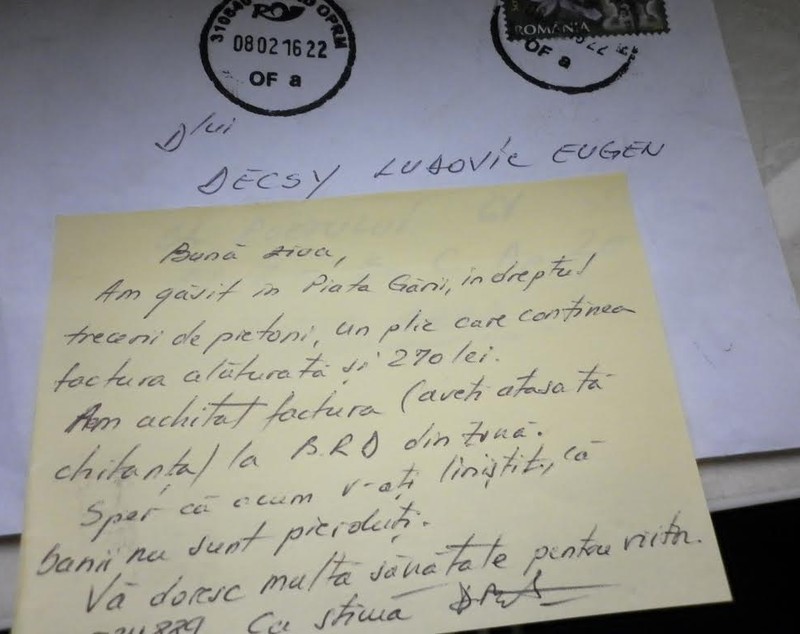 08 02 16 22
OF a
ROMANIA
OF a
D/lui
DECSY LUDOVIC EUGEN
Bună ziua,
Am găsit în Piata Gării, în dreptul
trecerii de pietoni, un plic care conținea
factura alăturată și 270 lei.
Am achitat factura (aveti atasată
chitanța) la B.R.D din zonă.
Sper că acum v-ați liniștit, că
banii nu sunt pierduți.
Vă doresc multă sănătate pentru viitor.
Cu stimă